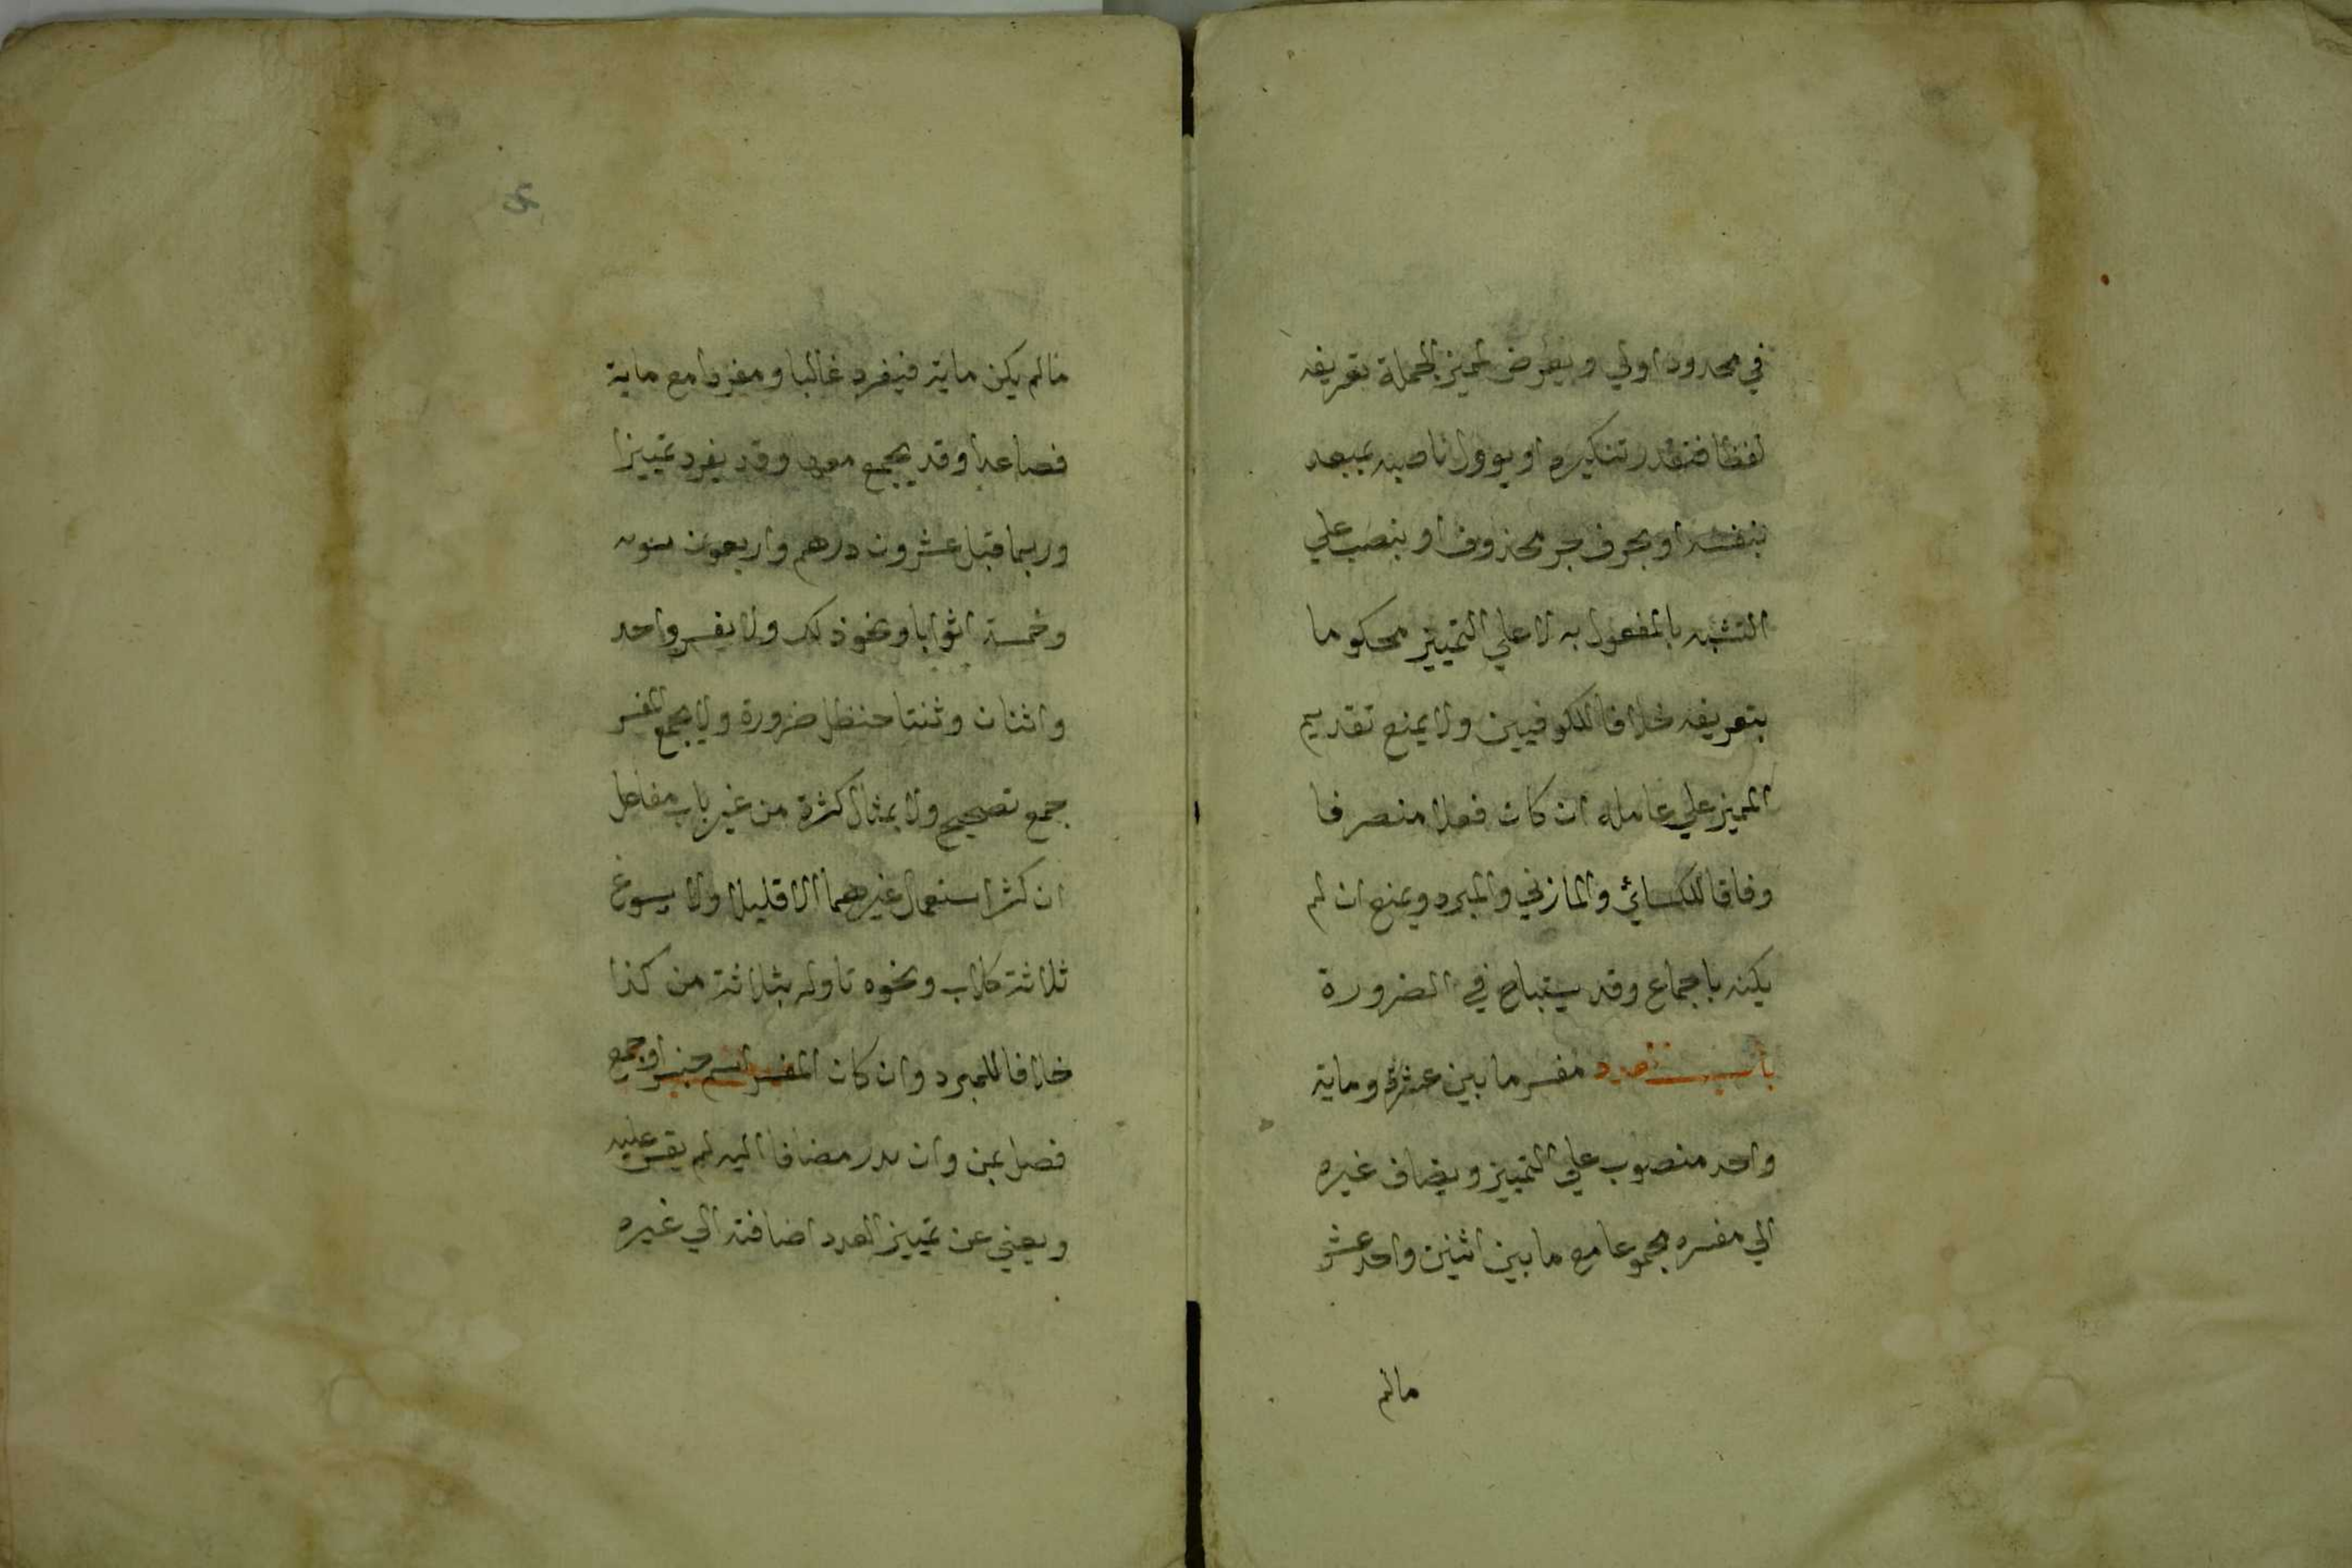 في محدود اولي ويعرض لمميز الجملة تعريفه
لفظا فتقدر تنكيره او يوول ناصبه بمتعد
بنفسه او بحرف جر محذوف او بنصب علي
التشبيه بالمفعول به لا علي التمييز محكوما
بتعريفه خلافا للكوفيين ولا يمنع تقديم
المميز علي عامله ان كان فعلا متصرفا
وفاقا للكسائي والمازني والمبرد ويمنع ان لم
يكنه باجماع وقد يستباح في الضرورة
باب العدد مفسر ما بين عشرة وماية
واحد منصوب علي التمييز ويضاف غيره
الي مفسره مجموعا مع ما بين اثنين واحد عشر
مالم
مالم يكن ماية فيفرد غالبا ومفردا مع ماية
فصاعدا وقد يجمع معها وقد يفرد تمييزا
وربما قيل عشرون درهم واربعون
وخمسة اثوابا ونحو ذلك ولا يفسر واحد
واثنان وثنتا حنظل ضرورة ولا يجمع المفسر
جمع تصحيح ولا بمثال كثرة من غير باب مفاعل
ان كثر استعمال غيرهما الا قليلا ولا يسوغ
ثلاثة كلاب ونحوه تاوله بثلاثة من كذا
خلافا للمبرد وان كان المفسر اسم جنس او جمع
فصل بمن وان ندر مضافا اليه لم يقس عليه
ويغني عن تمييز العدد اضافته الي غيره